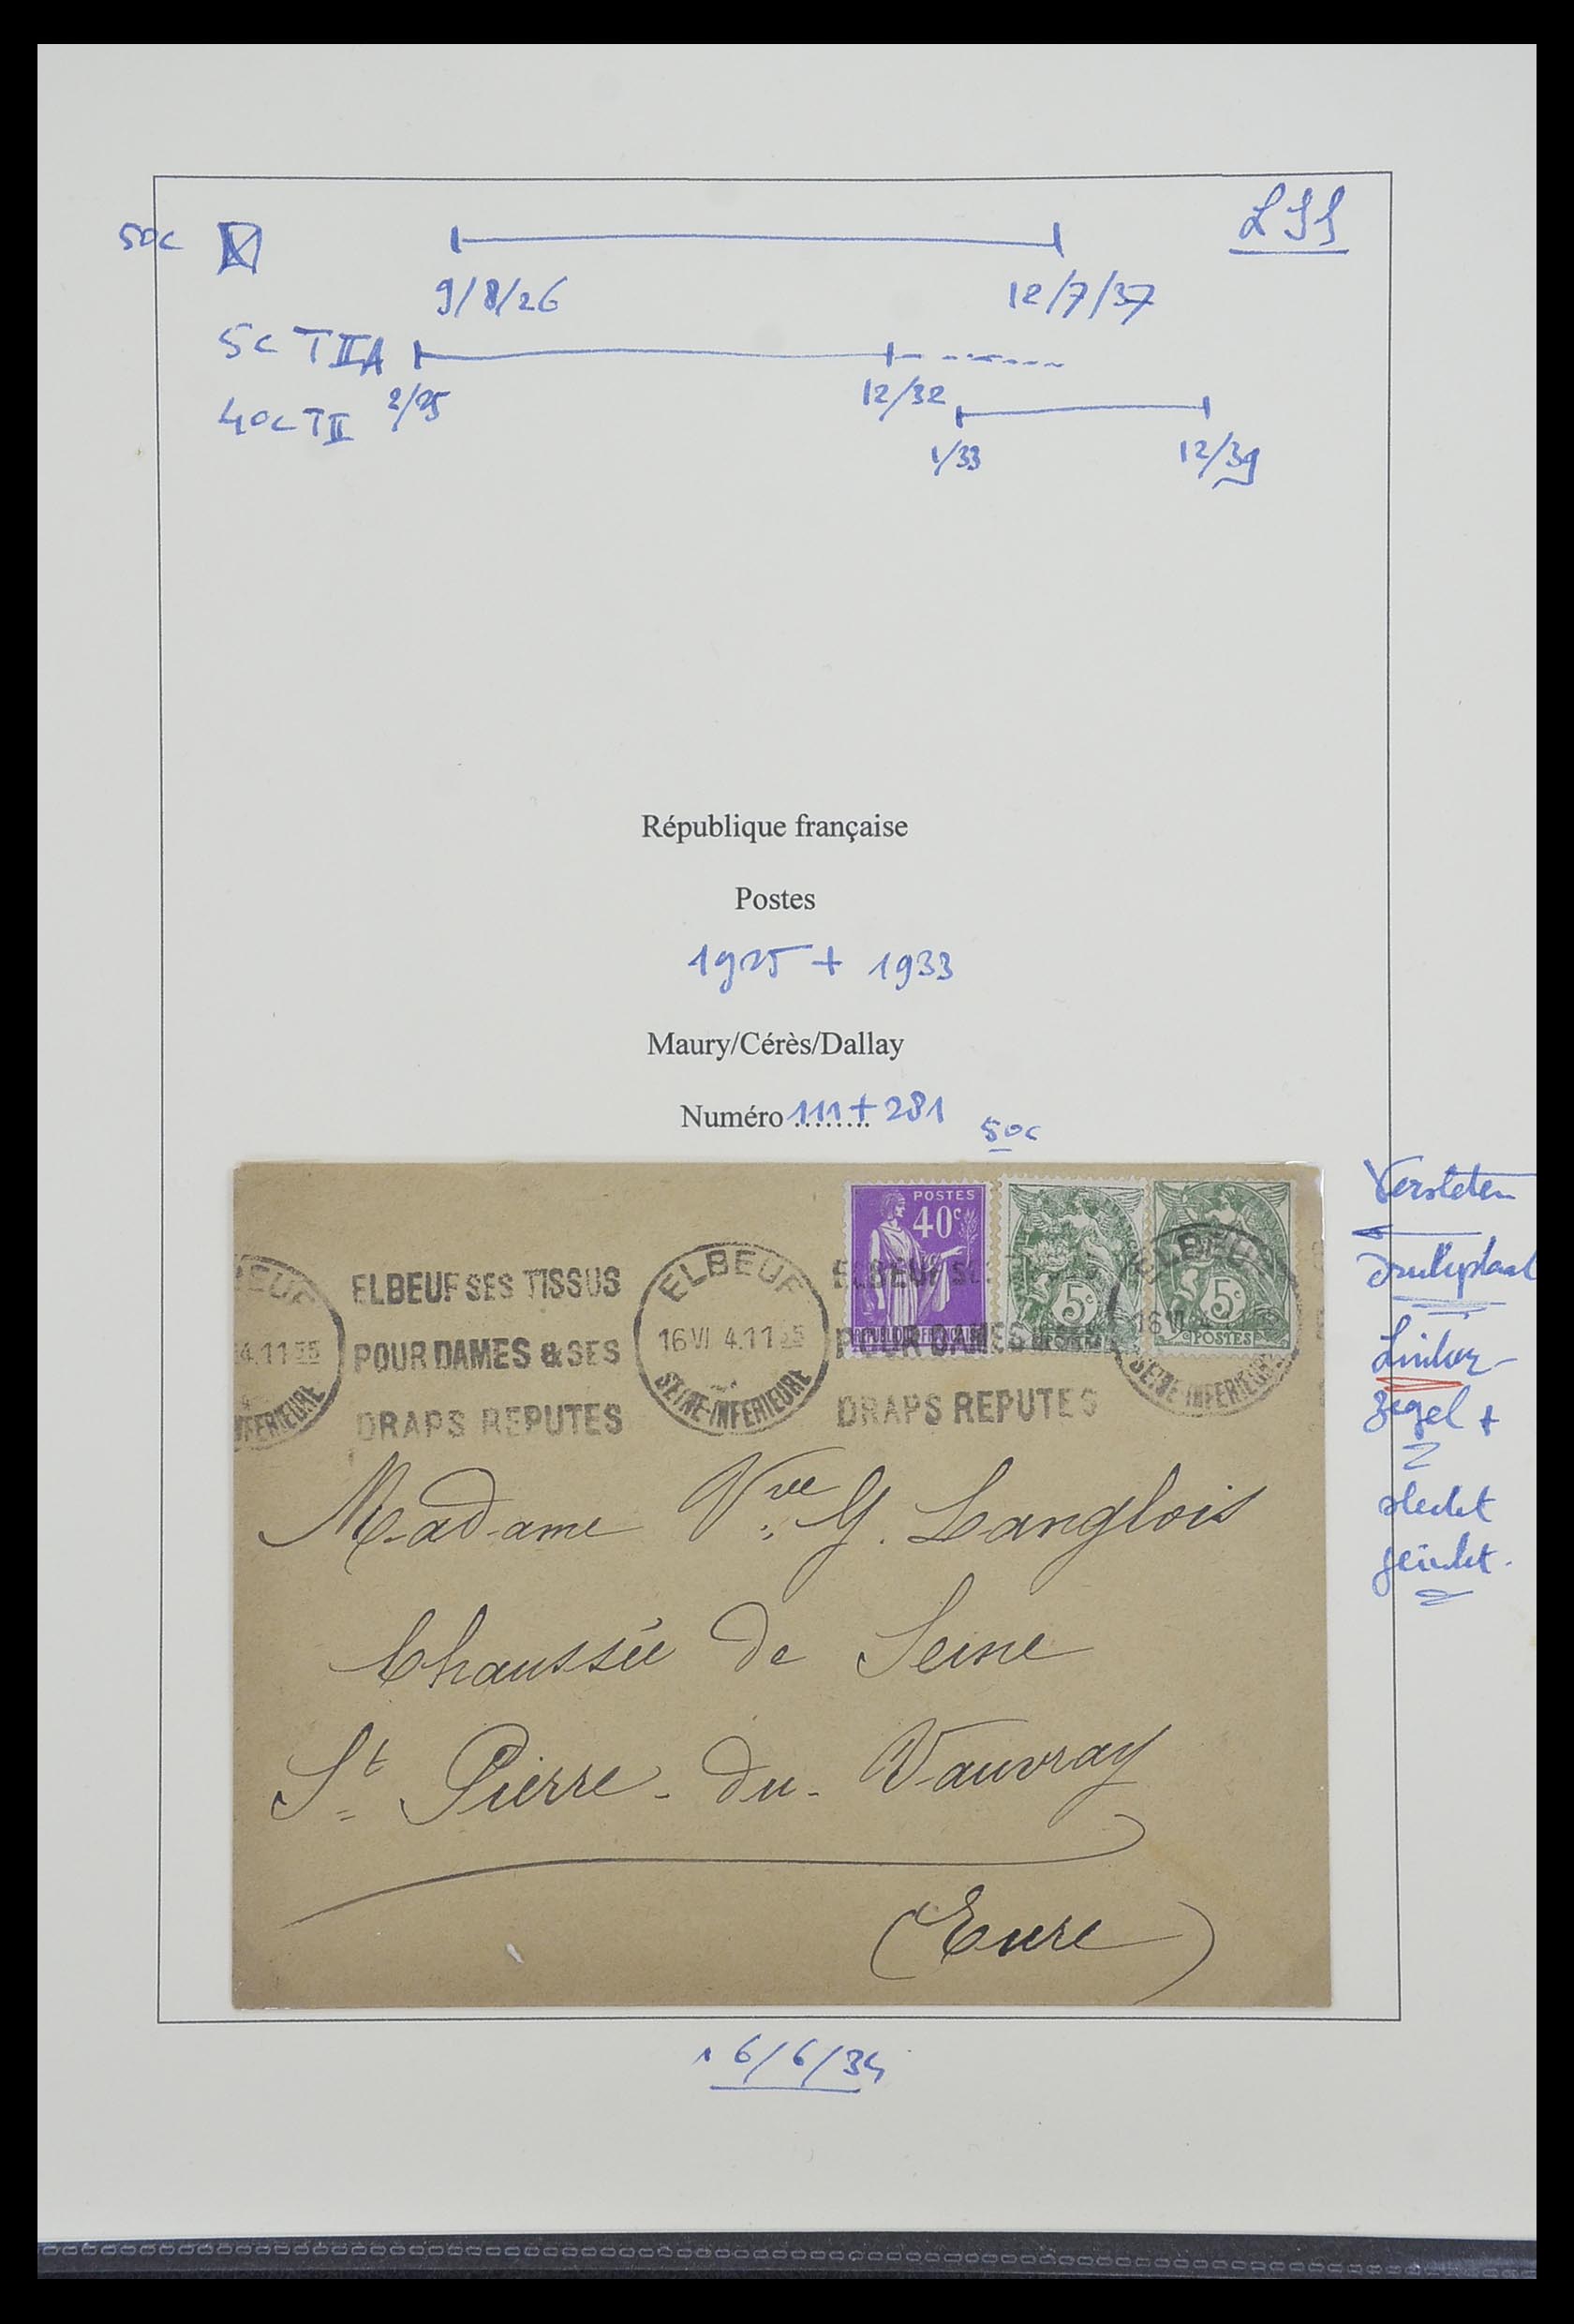 50c
LSS
9/8/26 12/7/37
5c TIIA
2/25 12/32
40c TII
1/33 12/39
République française
Postes
1925 + 1933
Maury/Cérès/Dallay
Numéro ........ 111 + 281
50c
POSTES
40c
RÉPUBLIQUE FRANÇAISE
5c
5c
POSTES
ELBEUF SES TISSUS
POUR DAMES & SES
DRAPS REPUTES
ELBEUF
16 VI 4.11 35
SEINE-INFERIEURE
ELBEUF SES
POUR DAMES & SES
DRAPS REPUTES
ELBEUF
16 VI
SEINE-INFERIEURE
4.11 35
Madame Vve G. Langlois
Chaussée de Seine
St Pierre-du-Vauvray
(Eure)
Versleten
drukplaat
Linker
zegel +
slecht
geïnkt.
16/6/34